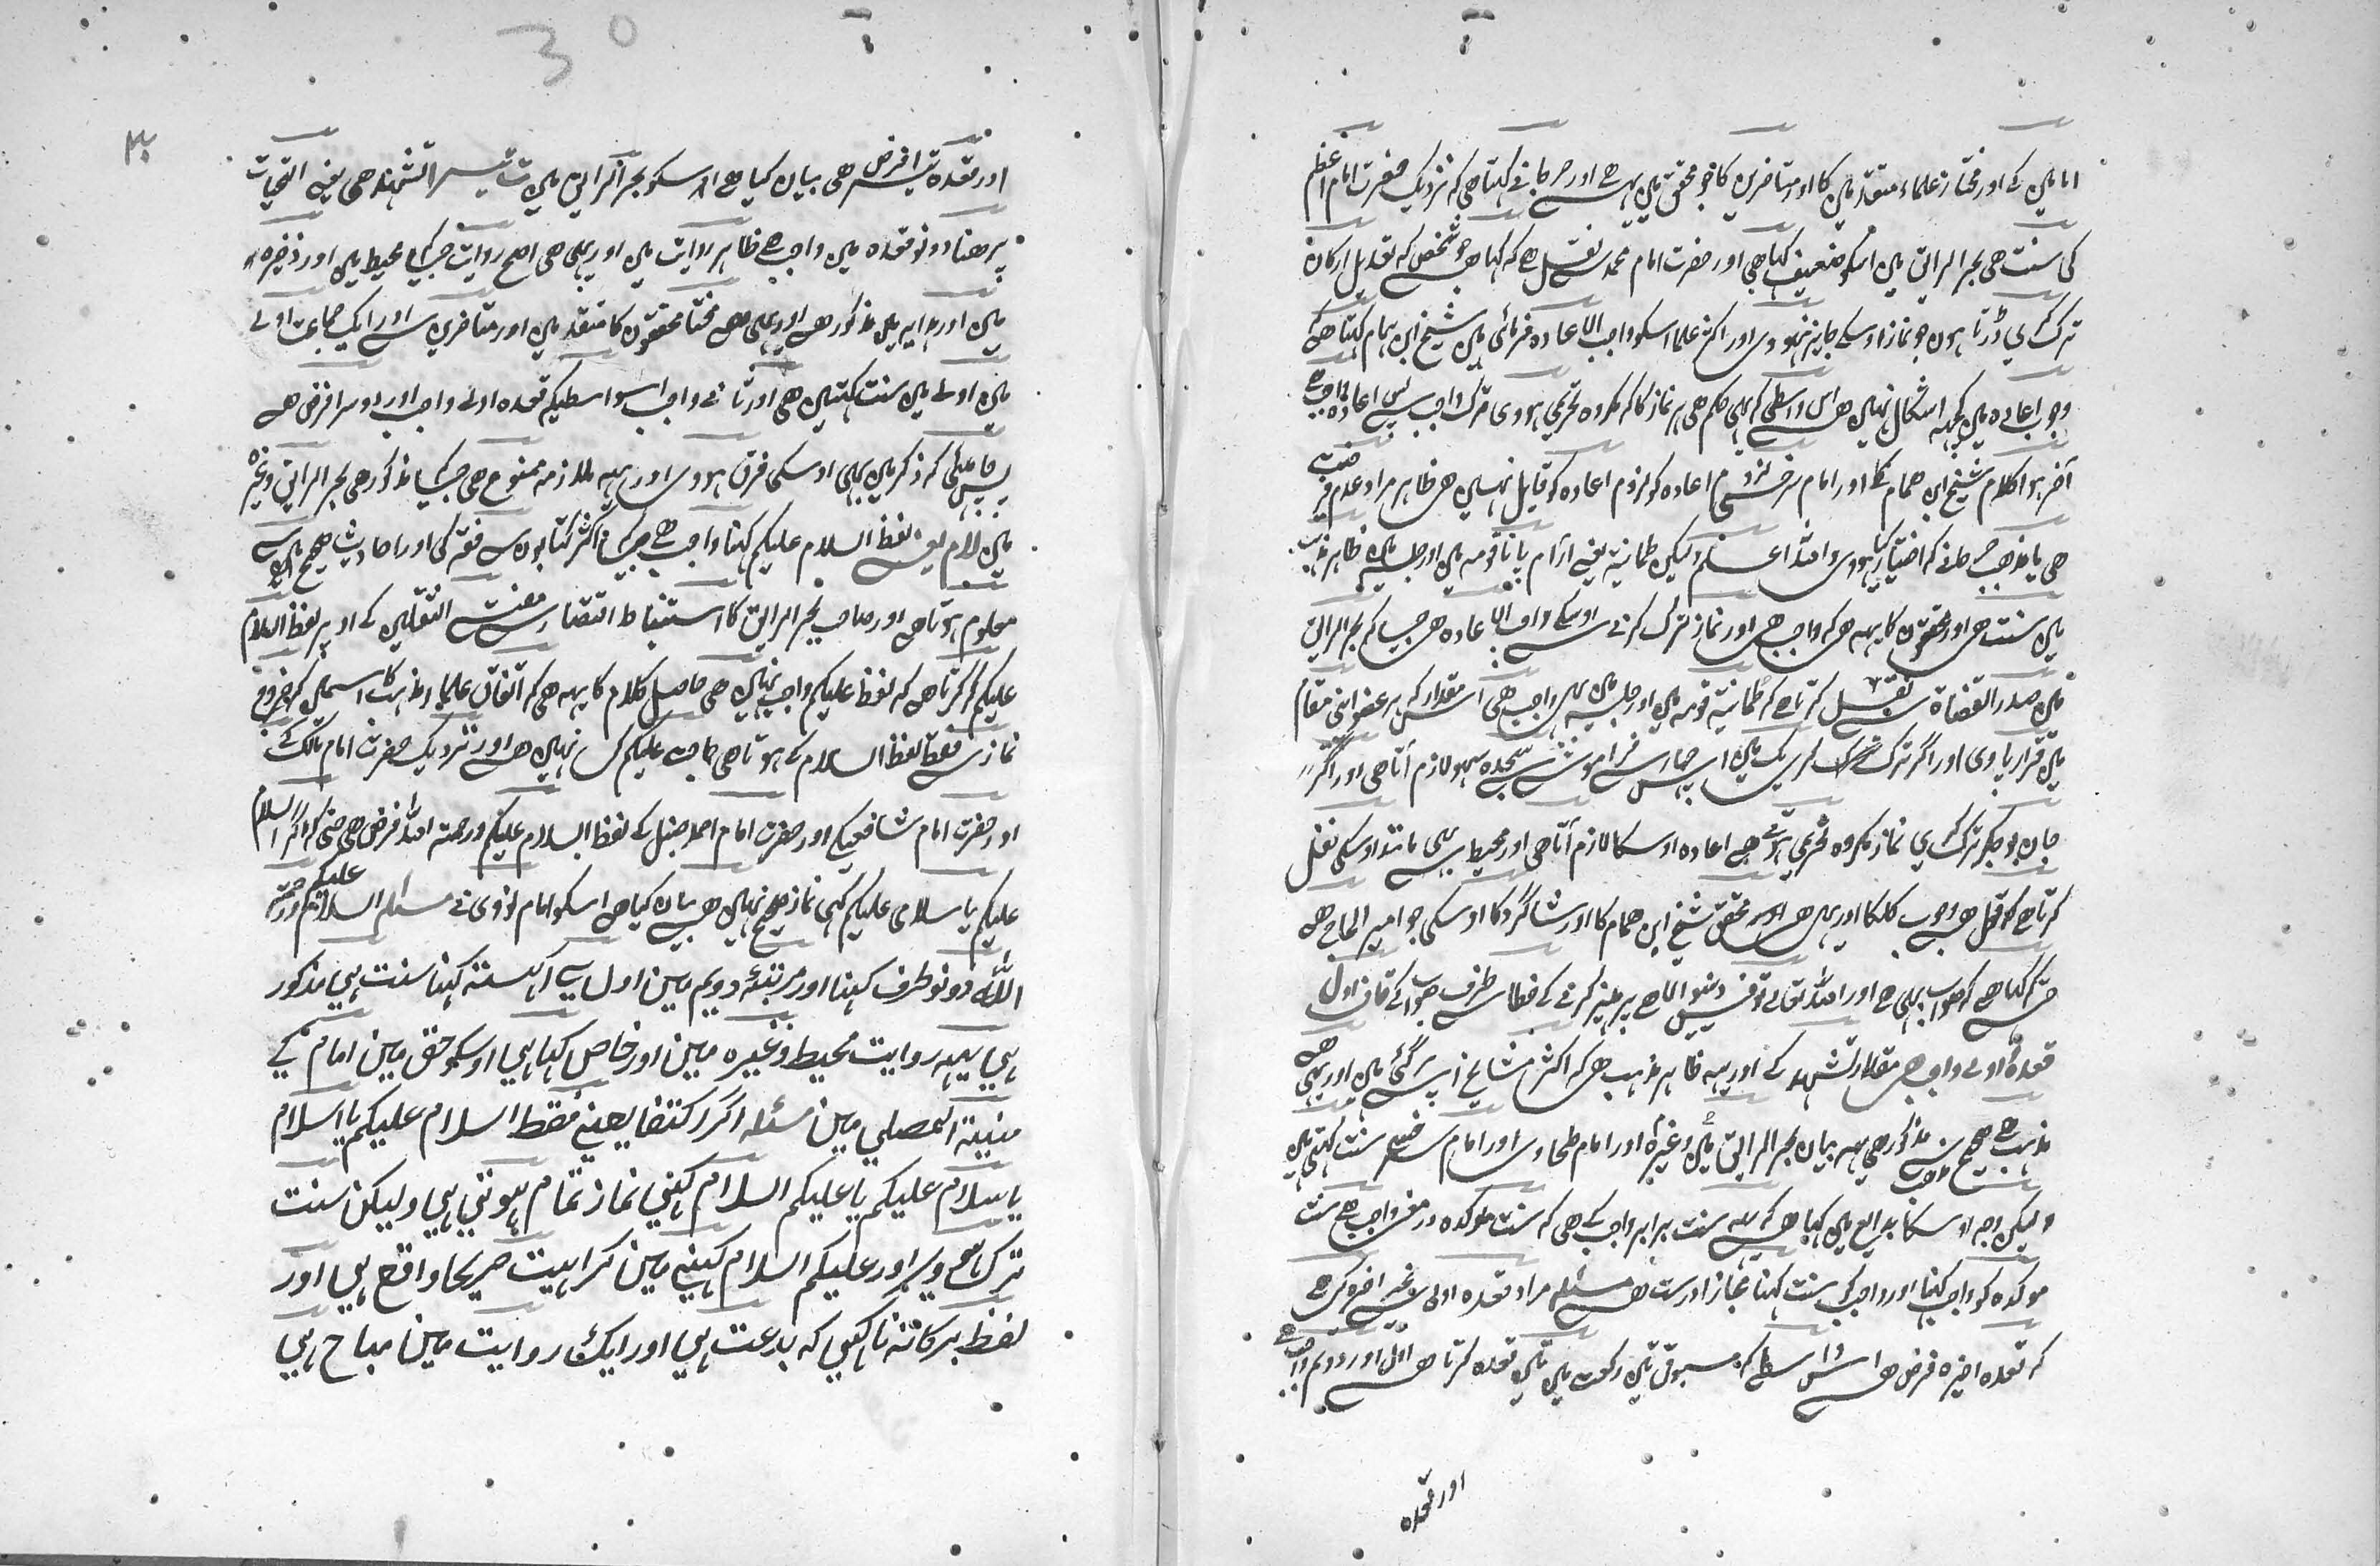 امامین کے اور مختار علماء متقدمین کا اور متاخرین کا جو محقق ہین یہہ ہے اور جرجانے کہتا ہی کہ نزدیک حضرت امام اعظم
کی سنت ہی بحر الرایق مین اسکو ضعیف کہا ہی اور حضرت امام محمد سے نقل ہے کہ کہا ہی جو شخص کہ تعدیل ارکان
ترک کرے ڈرتا ہون جو نماز اوسکے جایز نہووی اور اکثر علما اسکو واجب الاعادہ فرمائی ہین شیخ ابن ہمام کہتا ہی کہ
وجوب اعادے مین کچہہ اشکال نہین ہی اس واسطی کہ یہی حکم ہی ہر نماز کا کہ مکروہ تحریمی ہووی ترک واجب سے پس اعادہ واجب ہے
آخر ہوا کلام شیخ ابن ہمام کا اور امام سرخسی لزوم اعادہ کو قایل نہین ہی ظاہر مراد عدم فرضیت
ہی یا مذہب جرجانے کہ اختیار کیا ہووی واللہ اعلم ولیکن طمانیت یعنے آرام پانا قومہ مین اور جلسہ مین ظاہر مذہب
مین سنت ہی اور محققون کا یہہ ہی کہ واجب ہی اور نماز ترک کرنے سے اوسکے واجب الاعادہ ہی جیسا کہ بحر الرایق
مین صدر القضاة سے نقل کرتا ہے کہ طمانیت قومہ مین اور جلسہ مین بہی واجب ہی اس مقدار کہ ہر عضو اپنی مقام
مین قرار پاوی اور اگر ترک کرے کسی ایک مین ان چہار سے فراموشی سے سجدہ سہو لازم آتا ہی اور اگر
جان بوجکر ترک کرے نماز مکروہ تحریمی ہوتی ہے اعادہ اوسکا لازم آتا ہی اور محیط سے بہی مانند اوسکی نقل
کرتا ہے کہ قول بوجوب کلکا اور یہی ہی محقق شیخ ابن ہمام کا اور شاگرد کا اوسکی جو امیر الحاج ہی
حتی کہ کہا ہے کہ صواب یہی ہے اور اللہ تعالی توفیق دینوالا ہے پرہیز کرنے کے خطا سے طرف صواب کے
قعدہ اولے واجب ہی مقدار تشہد کے اور یہہ ظاہر مذہب ہی کہ اکثر مشایخ اسپر گئی ہین اور یہی ہی
مذہب ہے صحیح مذکور ہی یہہ بیان بحر الرایق مین وغیرہ اور امام طحاوی اور امام سرخسی سنت کہتی ہین
ولیکن وجہ اوسکا بدایع مین کہا ہی کہ یہہ سنت برابر واجب کے ہی کہ سنت موکدہ در معنی واجب ہے سنت
موکدہ کو واجب کہنا اور واجب کو سنت کہنا مجازا درست ہی مسئلہ مراد قعدہ اولی سے غیر اخیر کی ہے
کہ قعدہ اخیرہ فرض ہی اس واسطے کہ مسبوق تین رکعت مین تین قعدہ کرتا ہی اول اور دویم واجب ہے
اور قعدہ
30
۳۰
اور قعدہ تیسرا فرض ہی بیان کیا ہی اسکو بحر الرایق مین تیسرا تشہد ہی یعنے التحیات
پرھنا دونو قعدہ مین واجب ہے ظاہر روایت مین اور یہی ہی اصح روایت جیسا محیط مین اور ذخیرہ
مین اور ہدایہ مین مذکور ہے اور یہی ہی مختار محققون کا متقدمین اور متاخرین سے اور ایک جماعت اولے
مین اولے مین سنت کہتین ہی اور ثانے واجب اسواسطیکہ قعدہ اولے واجب اور دوسرا فرض ہے
پس چاہئی کہ ذکر مین بہی اوسکی فرق ہووی اور یہہ ملازمہ ممنوع ہی جیسا مذکور ہی بحر الرایق وغیرہ
مین لازم یعنے لفظ السلام علیکم کہنا واجب ہے جیسا اکثر کتابون سے فقہ کی اور احادیث صحیح سے
معلوم ہوتا ہی اور صاحب بحر الرایق کا استنباط اقتضا کے اوپر لفظ السلام
علیکم کر کرتا ہی کہ لفظ علیکم واجب نہین ہی حاصل کلام کا یہہ ہی کہ اتفاق علماء مذہب کا اسمین کہ خروج
نماز سے فقط لفظ السلام کے ہوتا ہی حاجت علیکم کی نہین ہے اور نزدیک حضرت امام مالک کے
اور حضرت امام شافعیکے اور حضرت امام احمد حنبل کے لفظ السلام علیکم ورحمة اللہ فرض ہی حتی کہ اگر السلام
علیکم یا سلامی علیکم کہی نماز صحیح نہین ہی بیان کیا ہی اسکو امام نووی نے مسئلہ السلام علیکم ورحمة
اللہ دونو طرف کہنا اور مرتبئہ دویم مین اول سے آہستہ کہنا سنت ہی مذکور
ہی یہہ روایت محیط وغیرہ مین اور خاص کہا ہی اوسکو حق مین امام کے
منیة المصلی مین مسئلہ اگر اکتفا یعنے فقط السلام علیکم یا السلام
یا سلام علیکم یا علیکم السلام کہنی نماز تمام ہوتی ہی ولیکن سنت
ترک ہووے اور علیکم السلام کہنے مین کراہیت صریحا واقع ہی اور
لفظ برکاتہ ناکہی کہ بدعت ہی اور ایک روایت مین مباح ہی